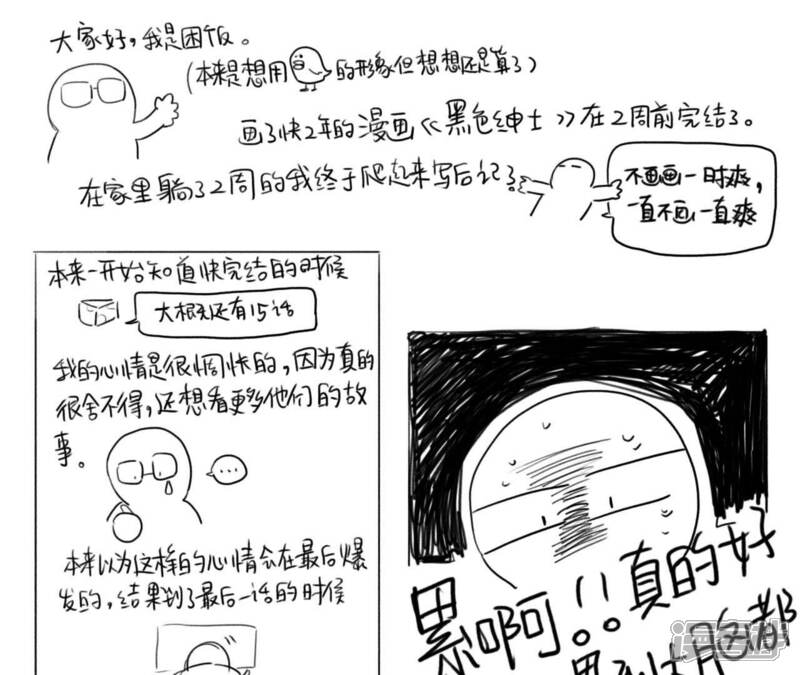 大家好，我是困饭。
（本来是想用的形象但想想还是算了）
画了快2年的漫画《黑色绅士》在2周前完结了。
在家里躺了2周的我终于爬起来写后记了
不画画一时爽，
一直不画一直爽
本来一开始知道快完结的时候
大概还有15话
我的心情是很惆怅的，因为真的
很舍不得，还想看更多他们的故
事。
...
本来以为这样的心情会在最后爆
发的，结果到了最后一话的时候
累啊!!真的好